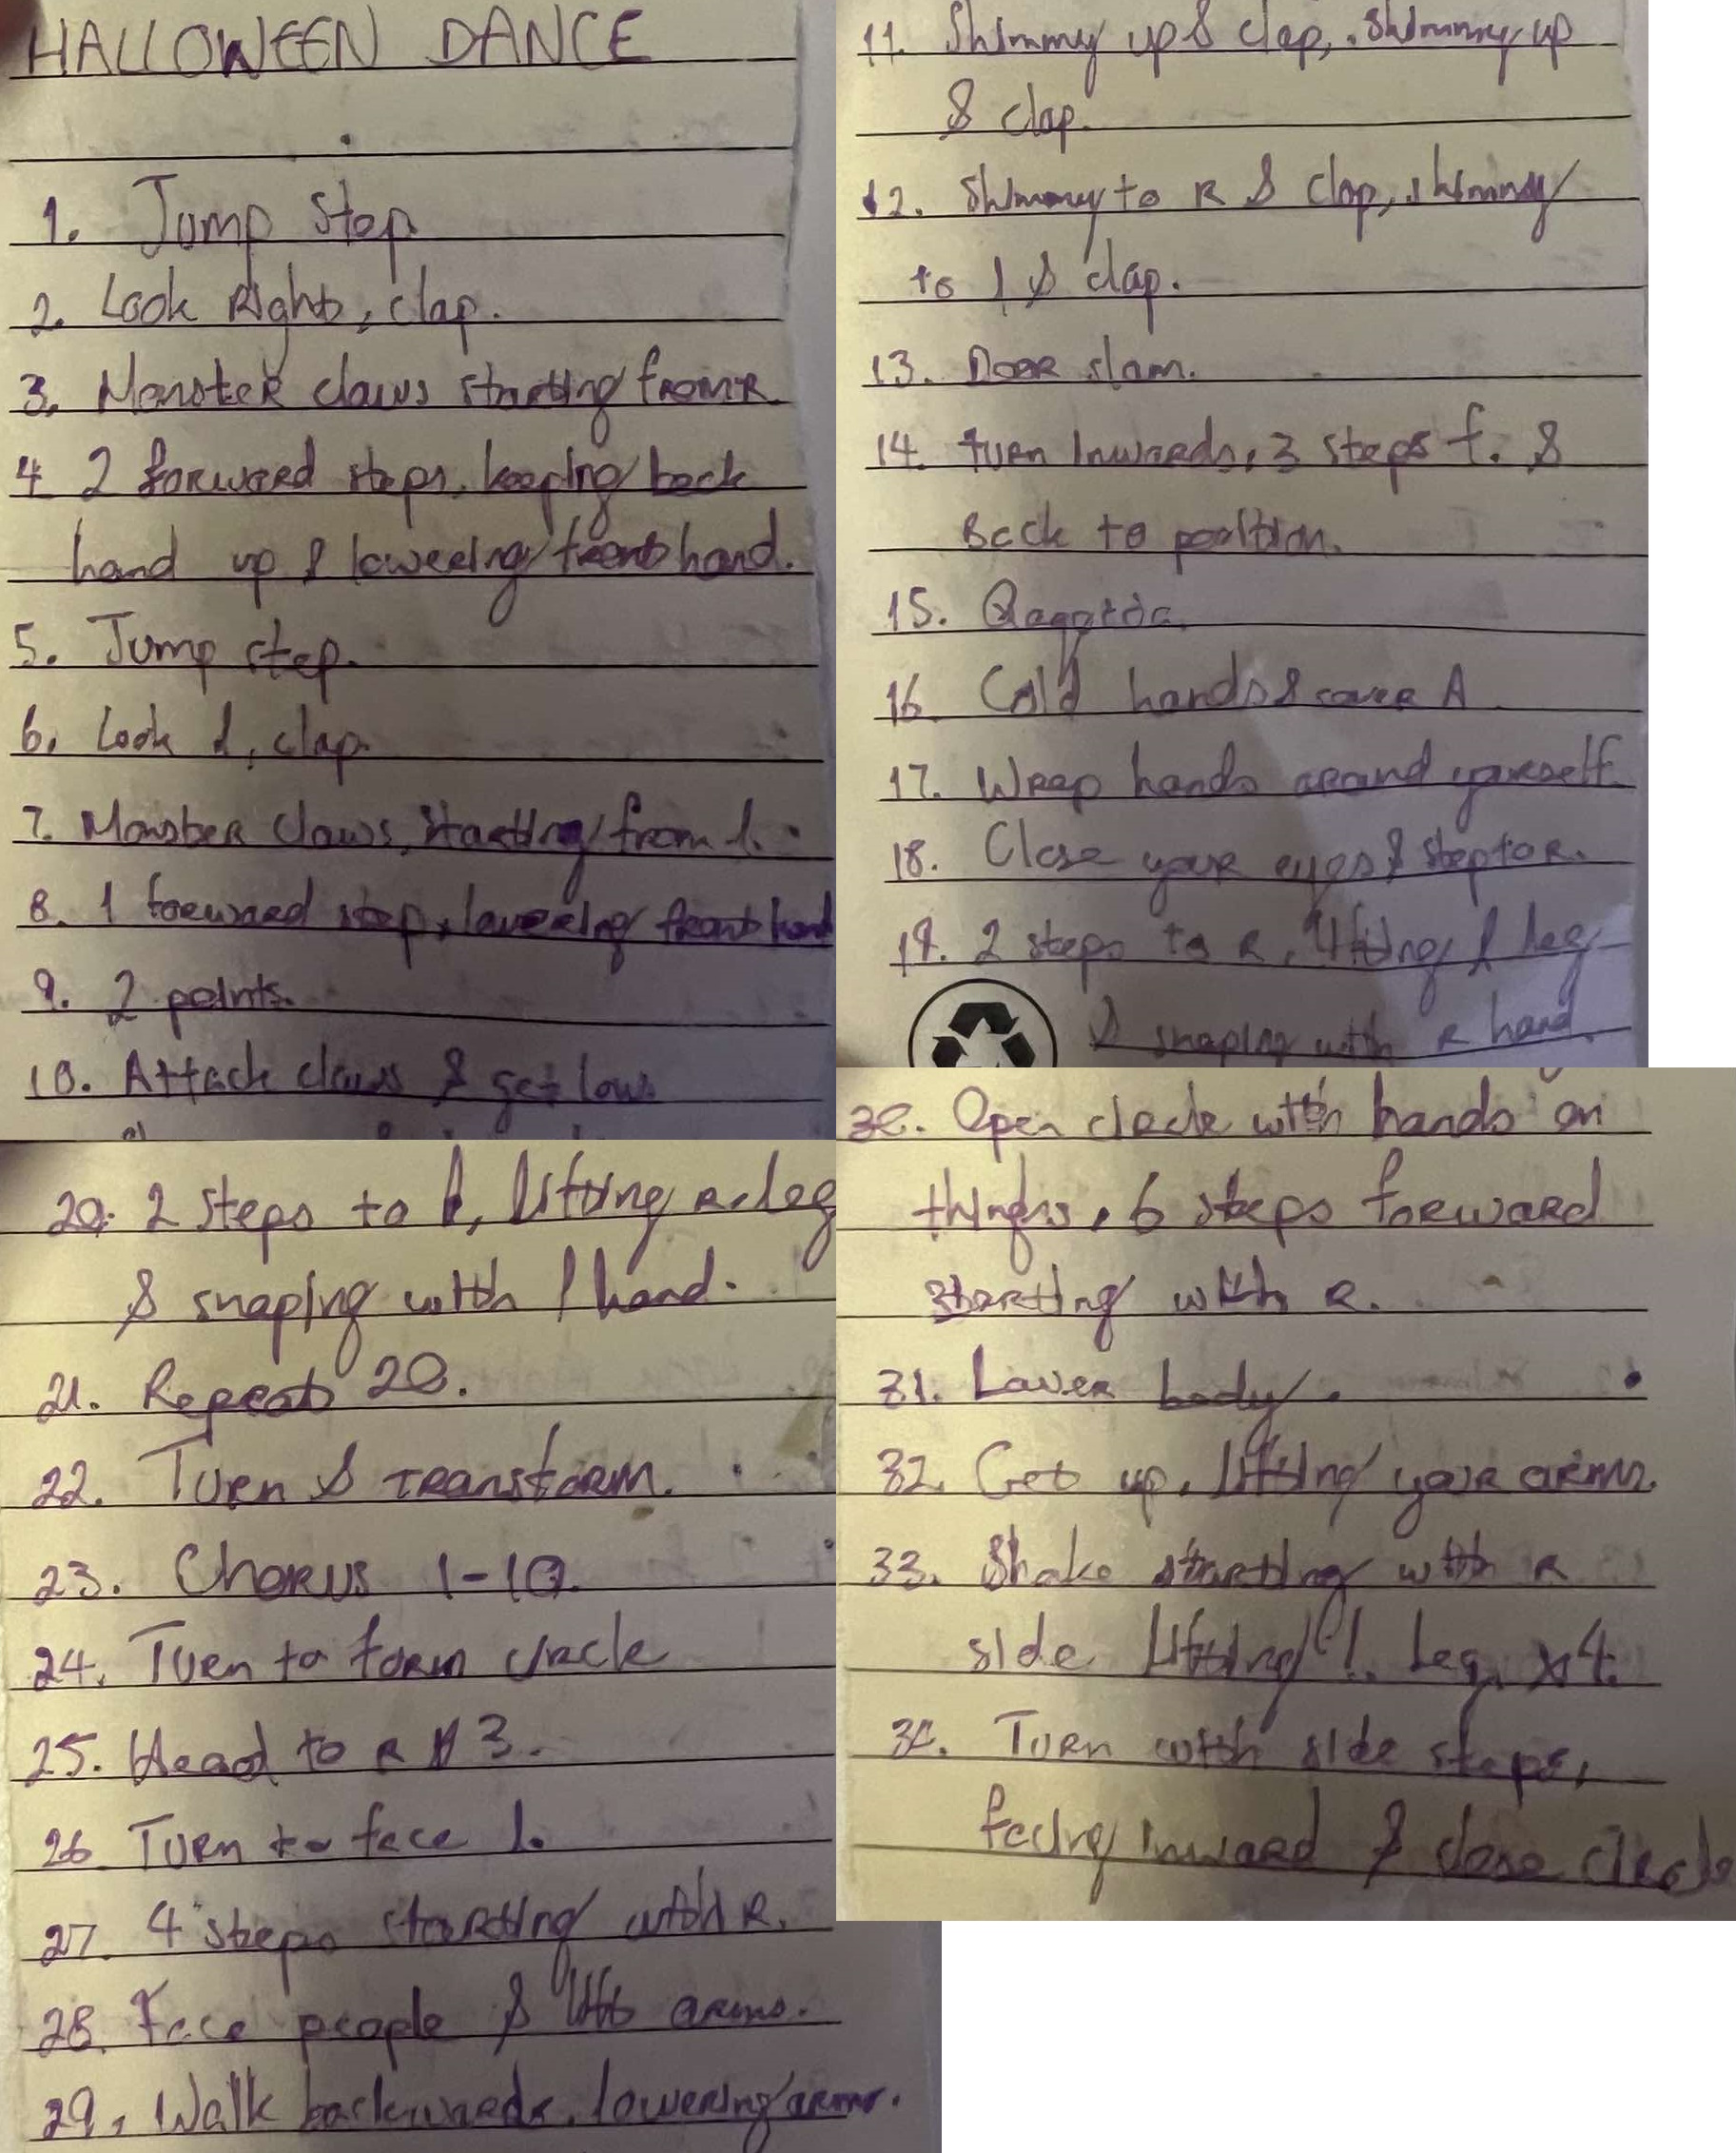 HALLOWEEN DANCE
1. Jump Step
2. Look Right, clap.
3. Monster claws starting from R
4. 2 forward steps, keeping back
hand up & lowering front hand.
5. Jump step.
6. Look l, clap.
7. Monster claws, starting from l.
8. 1 forward step, lowering front hand
9. 2 points.
10. Attack claws & get low.
11. Shimmy up & clap, shimmy up
& clap.
12. Shimmy to R & clap, shimmy
to l & clap.
13. Door slam.
14. turn Inwards, 3 steps f. &
Back to position.
15.
16. Cold hands & cover A
17. Wrap hands around yourself
18. Close your eyes & step to R.
19. 2 steps to R, lifting l leg
& snaping with R hand.
20. 2 steps to l, lifting R. leg
& snaping with l hand.
21. Repeat 20.
22. Turn & transform.
23. Chorus 1-10.
24. Turn to form circle
25. Head to R 3.
26. Turn to face l.
27. 4 steps starting with R.
28. Face people & lift arms.
29. Walk backwards, lowering arms.
30. Open circle with hands on
thinghs, 6 steps forward
starting with R.
31. Lower body.
32. Get up, lifting your arms.
33. Shake starting with R
side lifting l. Leg x4.
34. Turn with side steps,
facing inward & close circle